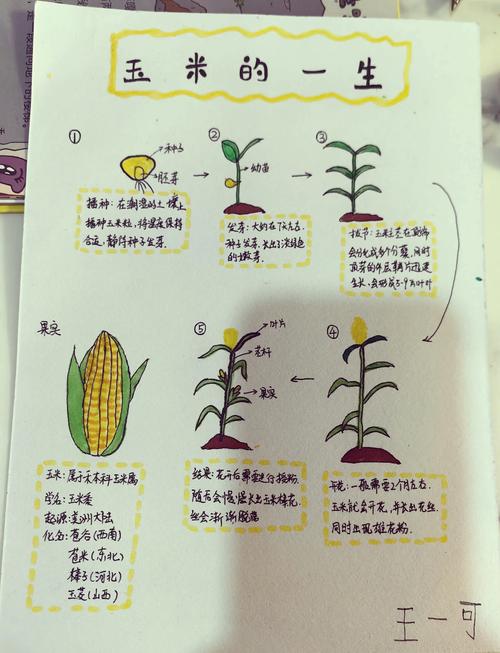 玉米的一生
①
种子
胚芽
播种：在潮湿的土壤上
播种玉米粒，将温度保持
合适，静待种子发芽。
②
幼苗
发芽：大约在7天左右
种子发芽，长出了淡绿色
的嫩芽。
③
拔节：玉米茎在顶端
会分化成多个分蘖，同时
生长，会形成5-9片叶
④
一般需要2个月左右，
玉米就会开花，并长出花丝，
同时出现雄花粉。
⑤
叶片
茎秆
果实
结果：花开后需要进行授粉，
随后会慢慢长出玉米棒花
丝会渐渐脱落
果实
玉米：属于禾本科玉米属
学名：玉米黍
起源：美洲大陆
苞谷（西南）
苞米（东北）
棒子（河北）
玉茭（山西）
王一可